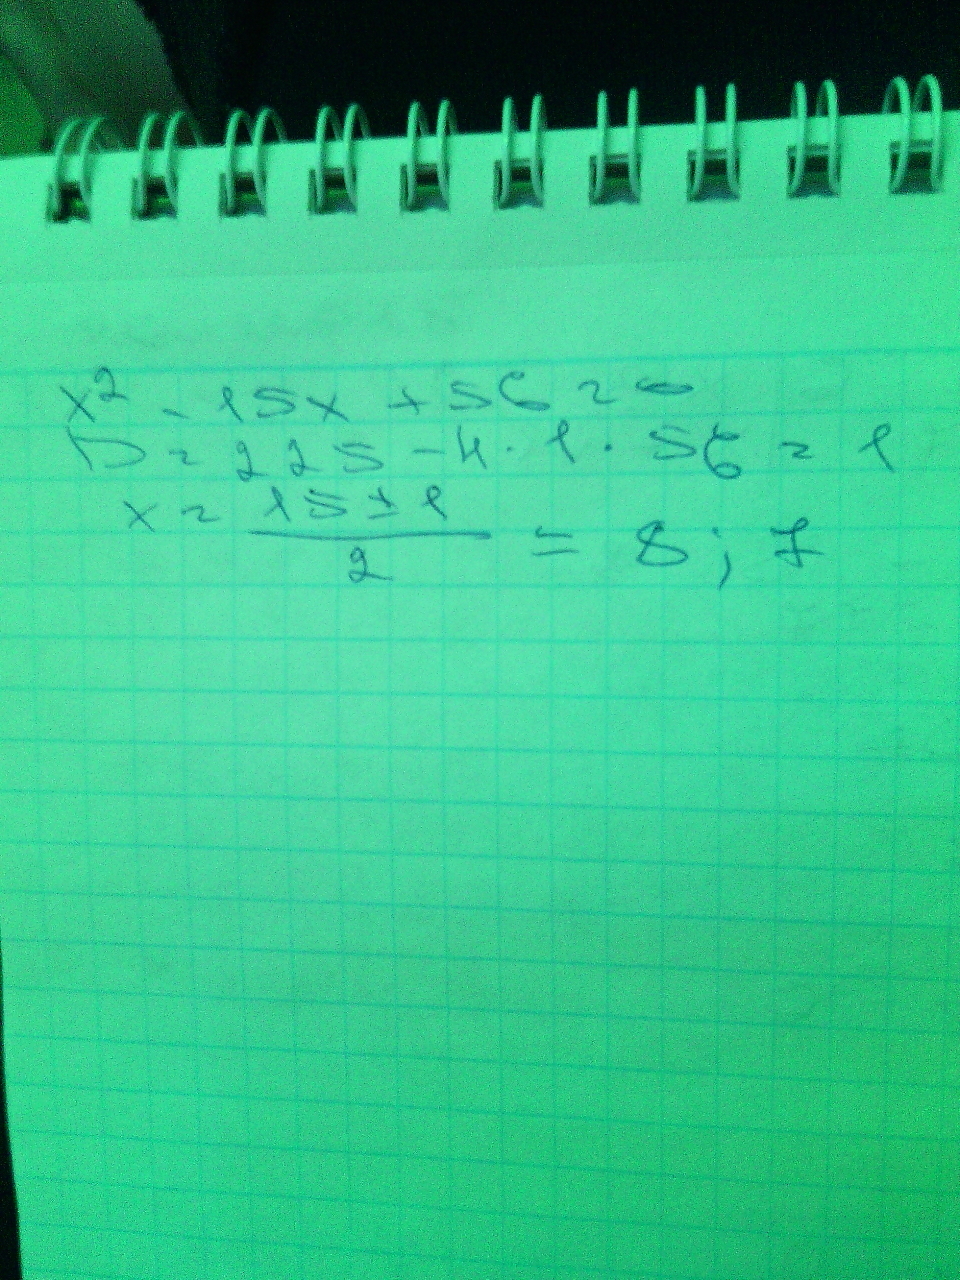 x² - 15x + 56 = 0
D = 225 - 4 · 1 · 56 = 1
x = (15 ± 1) / 2 = 8 ; 7